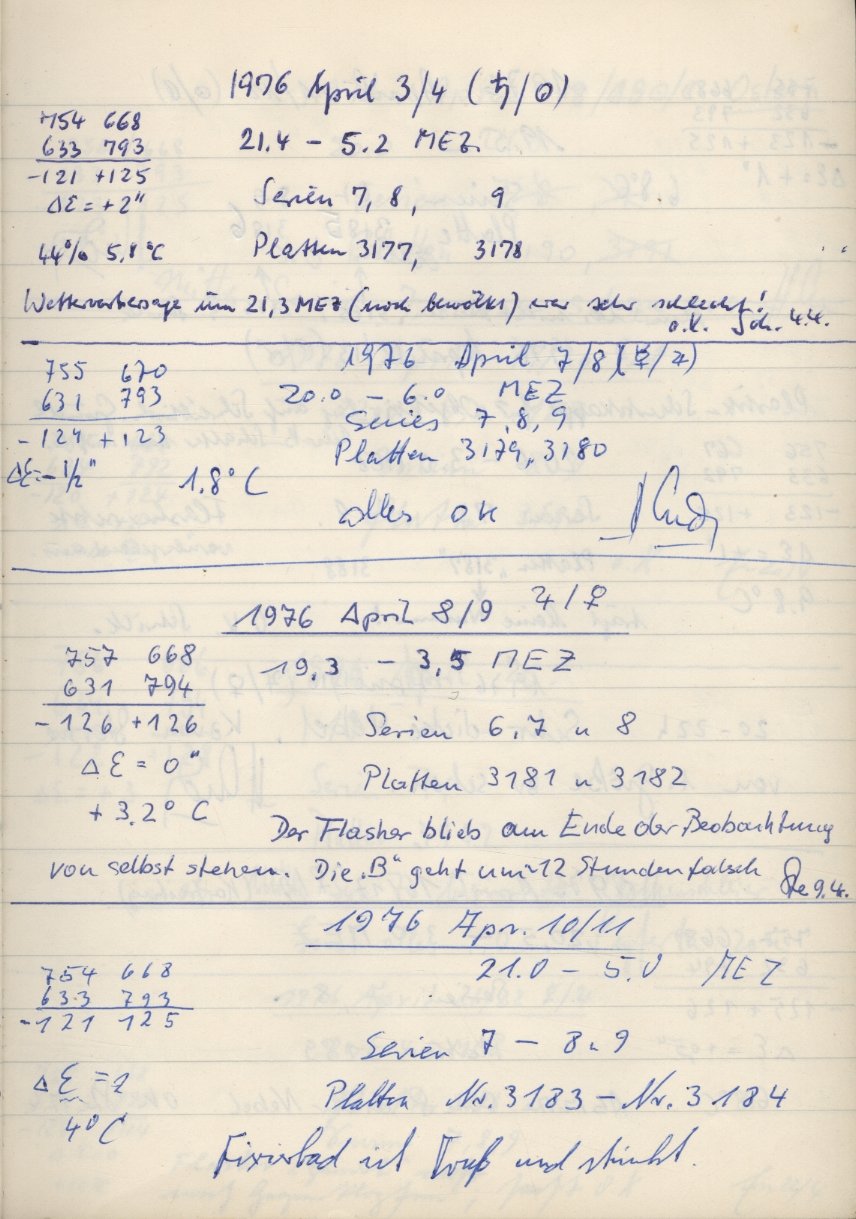 1976 April 3/4 (♄/☉)
754 668
633 793
-121 +125
ΔƐ = +2"
44% 5,8°C
21.4 - 5.2 MEZ
Serien 7, 8, 9
Platten 3177, 3178
Wettervorhersage um 21,3 MEZ (noch bewölkt) war sehr schlecht!
o.k. Sch. 4.4.
1976 April 7/8 (☿/♃)
755 670
631 793
-124 +123
ΔƐ = -1/2"
1.8°C
20.0 - 6.0 MEZ
Series 7,8,9
Platten 3179, 3180
alles ok
1976 April 8/9 ♃/♀
757 668
631 794
-126 +126
ΔƐ = 0"
+3.2°C
19,3 - 3,5 MEZ
Serien 6,7 u 8
Platten 3181 u 3182
Der Flasher blieb am Ende der Beobachtung
von selbst stehen. Die „B" geht um 12 Stunden falsch
9.4.
1976 Apr. 10/11
754 668
633 793
-121 125
ΔƐ = 2
4°C
21.0 - 5.0 MEZ
Serien 7 - 8 u 9
Platten Nr. 3183 - Nr. 3184
Fixirbad ist und stinkt.